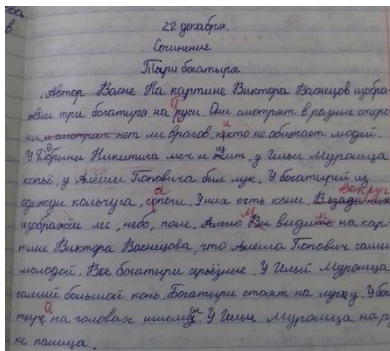 22 декабря.
Сочинение
Три богатыря
Автор Васне На картине Виктора Васнецов изобра-
жены три богатыря на руси. Они смотрят в разные сторо-
ны смотрят нет ли врагов, никто не обижает людей
У Добрыни Никитича меч и щит, у Ильи Муромца
копьё, у Алёши Поповича был лук. У богатырей из
одежды кольчуга, сапоги. У них есть кони. Вокруг
изображён лес, небо, поле. Мы видим на кар-
тине Виктора Васнецова, что Алеша Попович самий
молодой. Все богатыри серьёзние. У Ильй Муромца
самий большой конь. Богатыри стоят на лугу. У бога
тырей на головах шлемы. У Ильи Муромца на ру
ке палица.